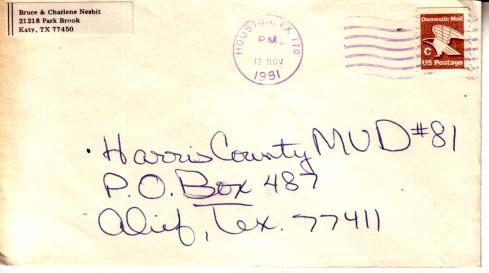 Bruce & Charlene Nesbit
21218 Park Brook
Katy, TX 77450
HOUSTON, TX 770
PM
12 NOV
1981
Domestic Mail
C
US Postage
Harris County MUD #81
P.O. Box 487
Alief, Tex. 77411